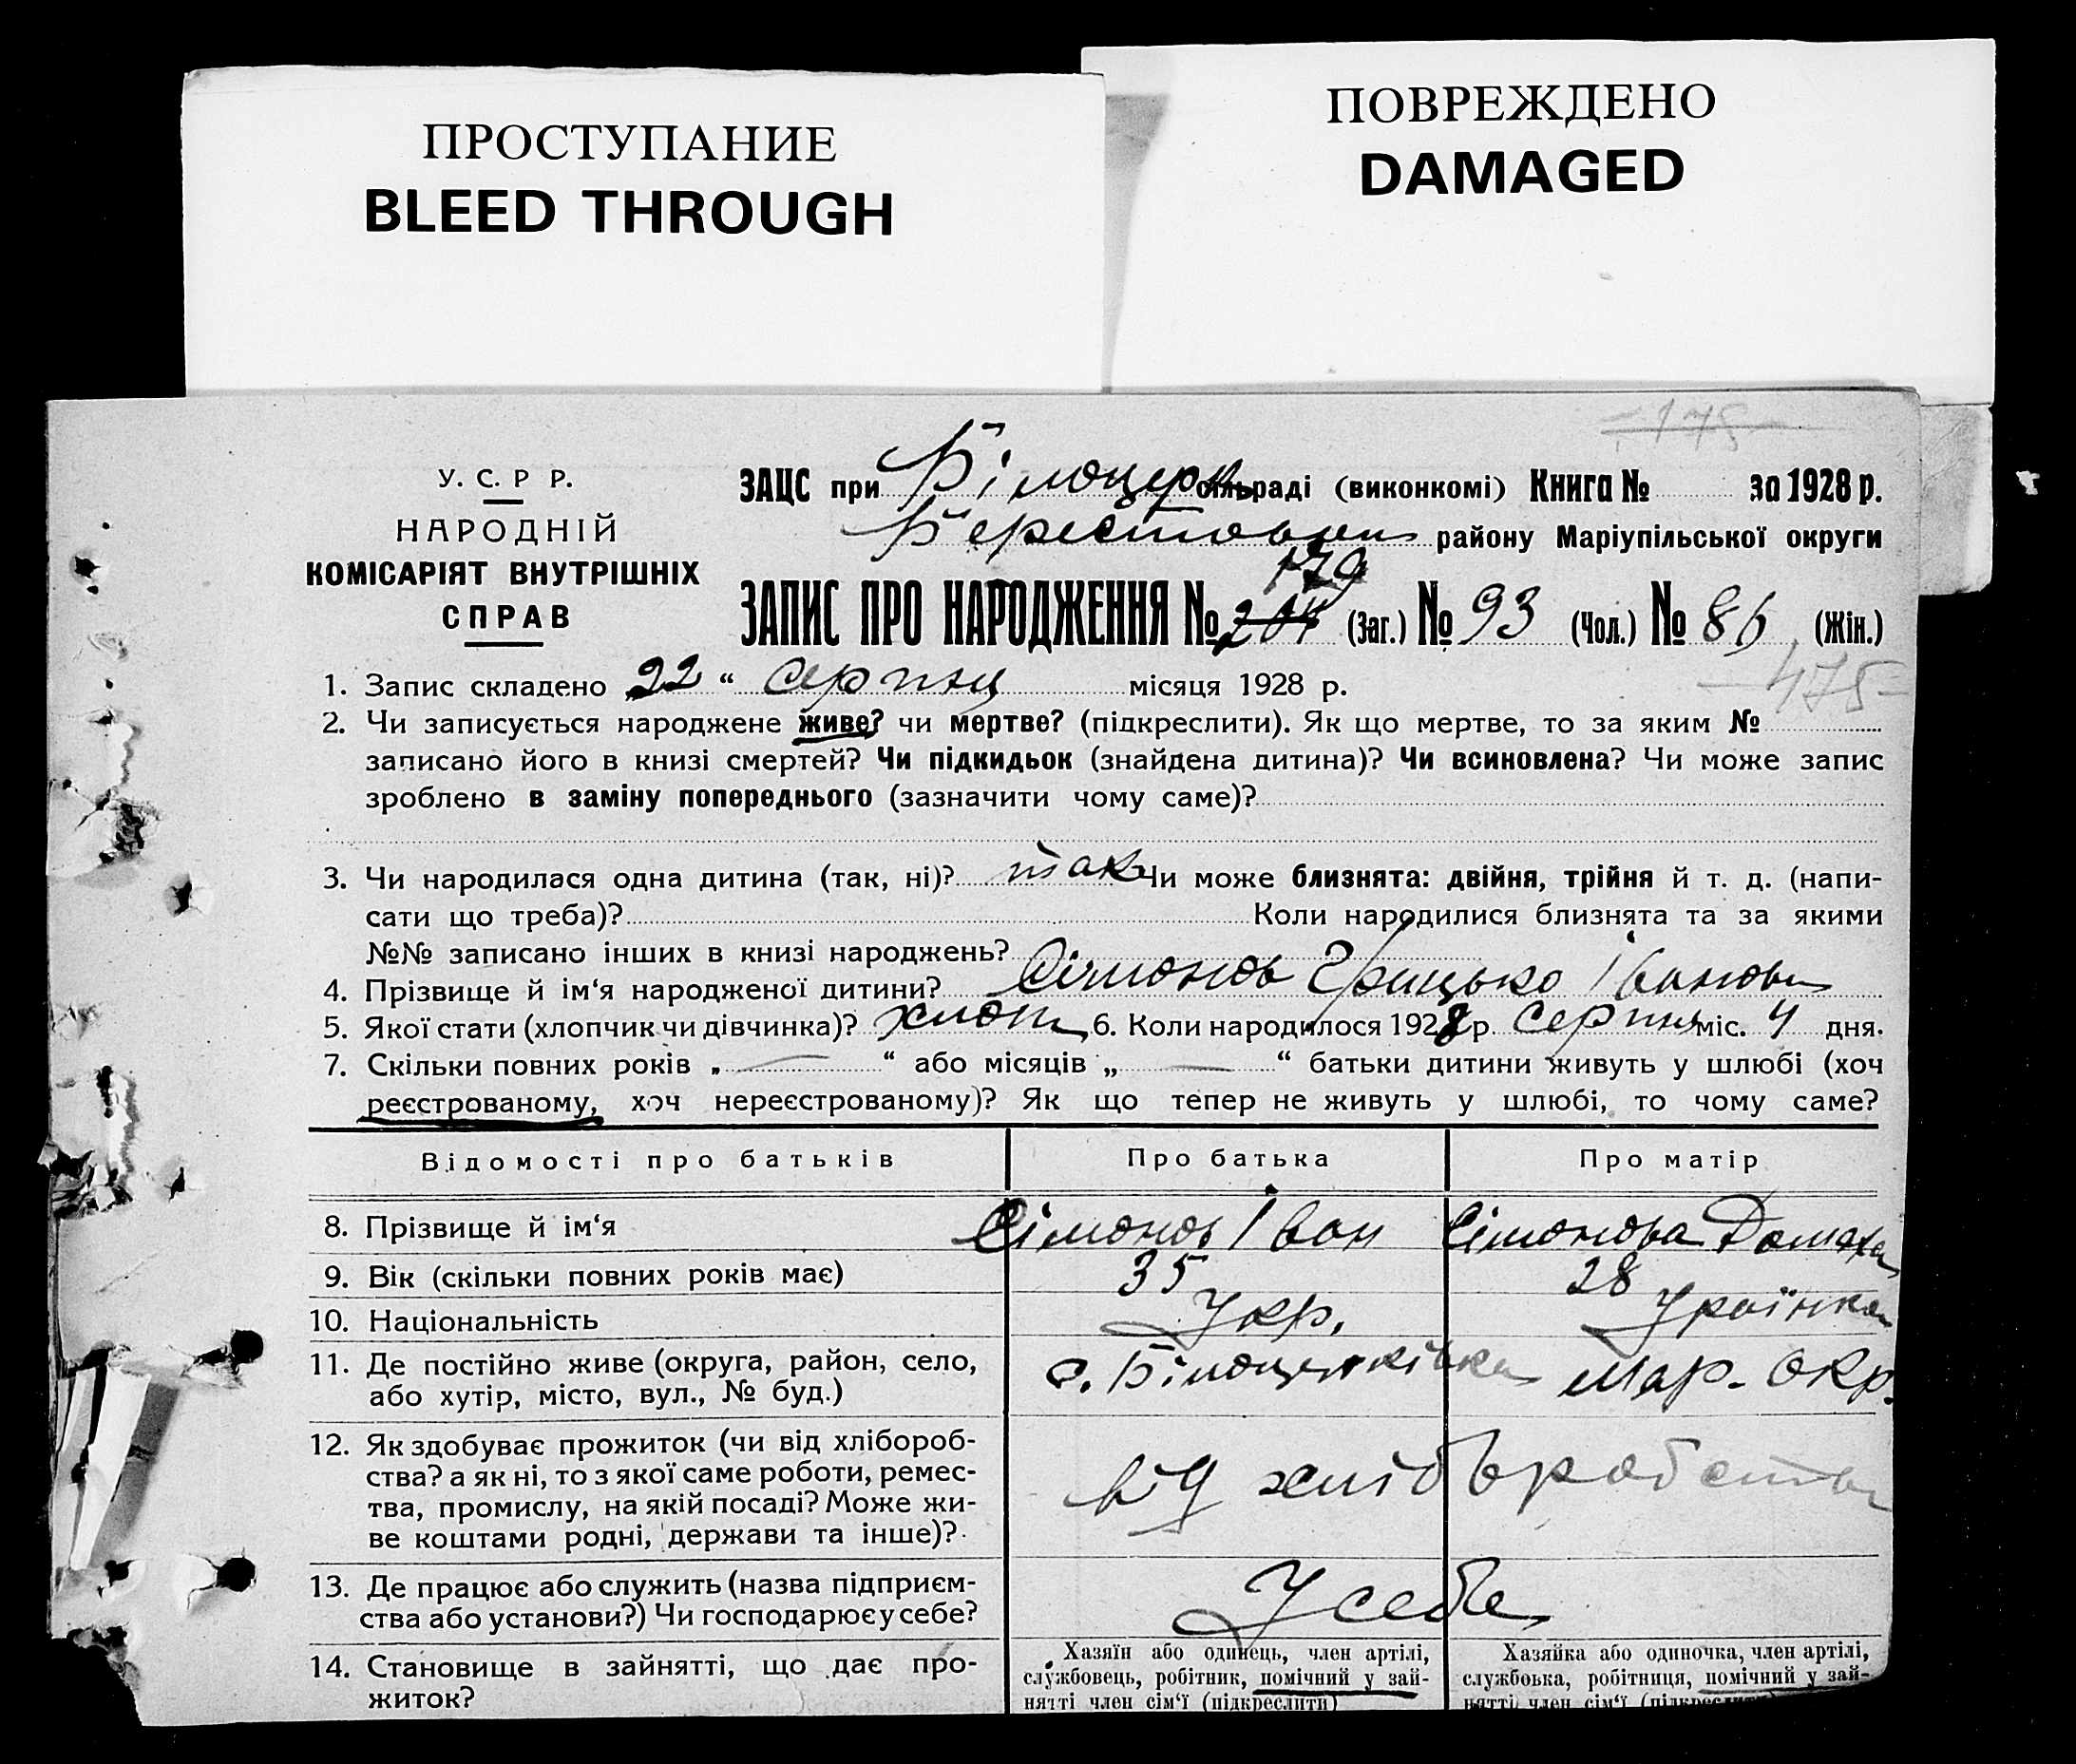 ПРОСТУПАНИЕ
BLEED THROUGH
ПОВРЕЖДЕНО
DAMAGED
У. С. Р Р.
НАРОДНІЙ
КОМІСАРІЯТ ВНУТРІШНІХ
СПРАВ
ЗАЦС при Білоцерк сільраді (виконкомі) Книга № за 1928 р.
району Маріупільської округи
179
ЗАПИС ПРО НАРОДЖЕННЯ № 204 (Заг.) № 93 (Чол.) № 86 (Жін.)
475
1. Запис складено 22 “ серпня місяця 1928 р.
2. Чи записується народжене живе? чи мертве? (підкреслити). Як що мертве, то за яким №
записано його в книзі смертей? Чи підкидьок (знайдена дитина)? Чи всиновлена? Чи може запис
зроблено в заміну попереднього (зазначити чому саме)?
3. Чи народилася одна дитина (так, ні)? так Чи може близнята: двійня, трійня й т. д. (напи-
сати що треба)? Коли народилися близнята та за якими
№№ записано інших в книзі народжень?
4. Прізвище й ім‘я народженої дитини? Сімонов Грицько Іванов
5. Якої стати (хлопчик чи дівчинка)? хлоп 6. Коли народилося 1928 р. Серпня міс. 4 дня.
7. Скільки повних років „ — “ або місяців „ — “ батьки дитини живуть у шлюбі (хоч
реєстрованому, хоч нереєстрованому)? Як що тепер не живуть у шлюбі, то чому саме?
Відомості про батьків Про батька Про матір
8. Прізвище й ім‘я Сімонов Іван Сімонова Домаха
9. Вік (скільки повних років має) 35 28
10. Національність Укр. Українка
11. Де постійно живе (округа, район, село, с. Білоцерківка Мар. Окр.
або хутір, місто, вул., № буд.)
12. Як здобуває прожиток (чи від хлібороб-
ства? а як ні, то з якої саме роботи, ремес- від хліборобства
тва, промислу, на якій посаді? Може жи-
ве коштами родні, держави та інше)?
13. Де працює або служить (назва підприєм- У себе
ства або установи?) Чи господарює у себе?
14. Становище в зайнятті, що дає про-
житок?
Хазяїн або одинець, член артілі,
службовець, робітник, помічний у зай-
нятті член сім‘ї (підкреслити)
Хазяйка або одиночка, член артілі,
службовька, робітниця, помічний у зай-
нятті член сім‘ї (підкреслити)